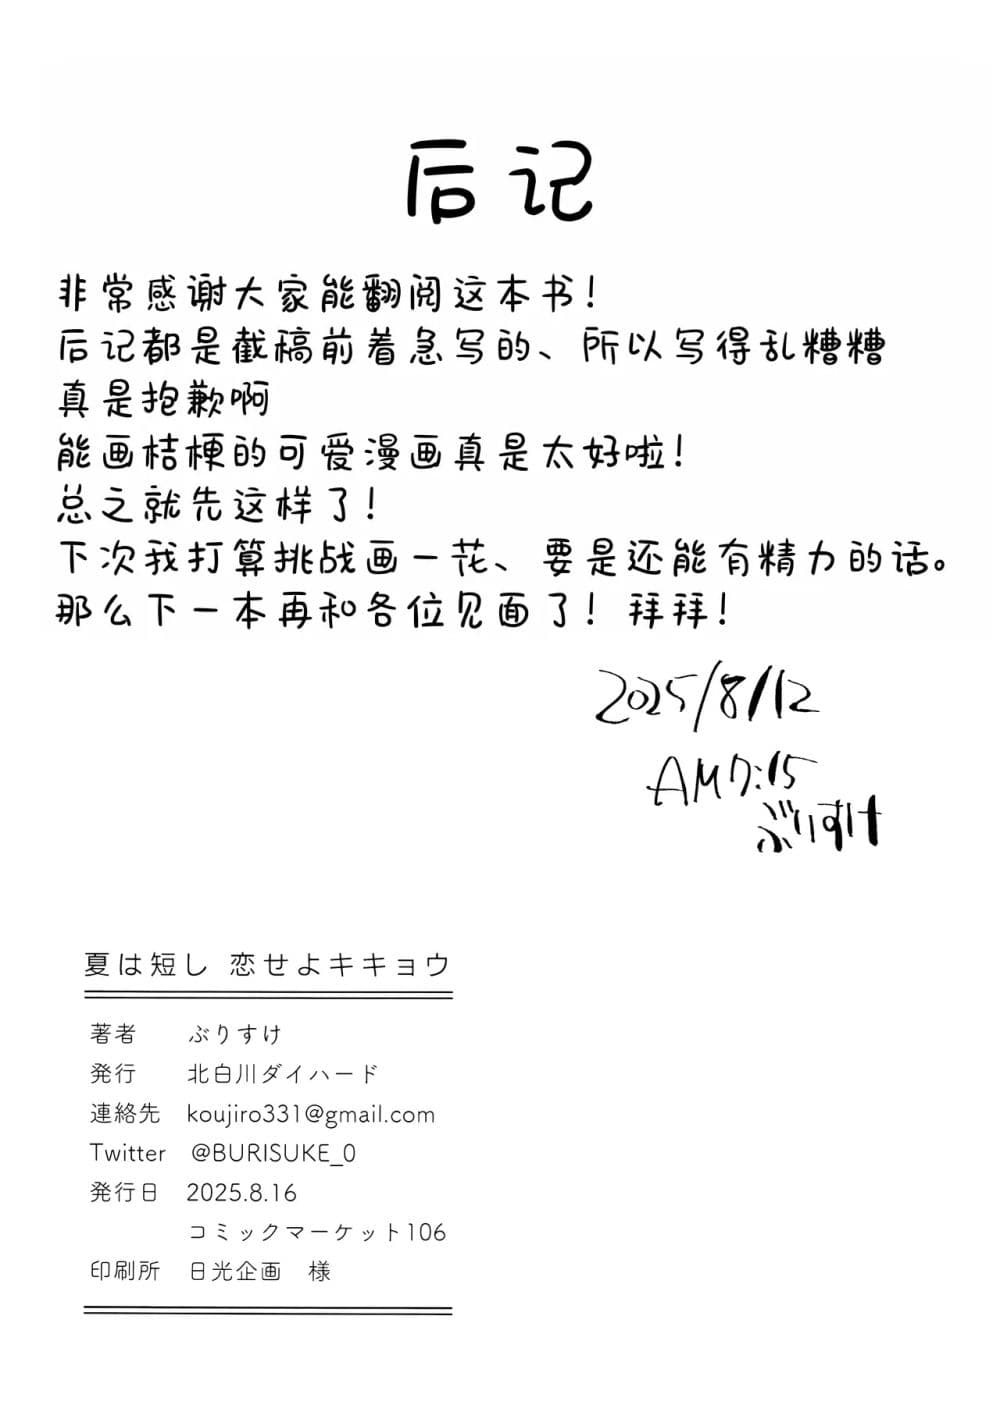 后记
非常感谢大家能翻阅这本书！
后记都是截稿前着急写的、所以写得乱糟糟
真是抱歉啊
能画桔梗的可爱漫画真是太好啦！
总之就先这样了！
下次我打算挑战画一花、要是还能有精力的话。
那么下一本再和各位见面了！拜拜！
2025/8/12
AM7:15
ぶりすけ
夏は短し 恋せよキキョウ
著者 ぶりすけ
発行 北白川ダイハード
連絡先 koujiro331@gmail.com
Twitter @BURISUKE_0
発行日 2025.8.16
コミックマーケット106
印刷所 日光企画 様